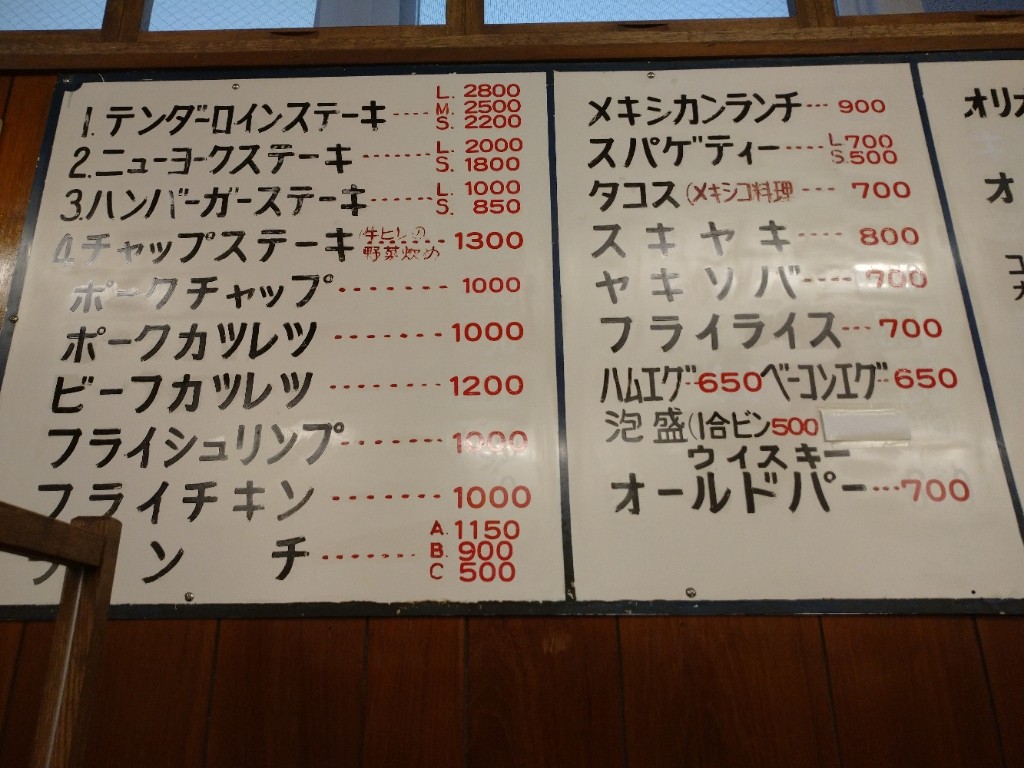 1.テンダーロインステーキ····· L. 2800
M. 2500
S. 2200
2.ニューヨークステーキ······· L. 2000
S. 1800
3.ハンバーガーステーキ······ L. 1000
S. 850
4.チャップステーキ(牛ヒレの野菜炒め 1300
ポークチャップ········ 1000
ポークカツレツ ········ 1000
ビーフカツレツ ········ 1200
フライシュリンプ········ 1000
フライチキン ········ 1000
ランチ ········ A. 1150
B. 900
C 500
メキシカンランチ··· 900
スパゲティー···· L.700
S.500
タコス(メキシコ料理 ···· 700
スキヤキ···· 800
ヤキソバ···· 700
フライライス··· 700
ハムエグ··650ベーコンエグ··650
泡盛(1合ビン500
ウィスキー
オールドパー···700
オリ
オ